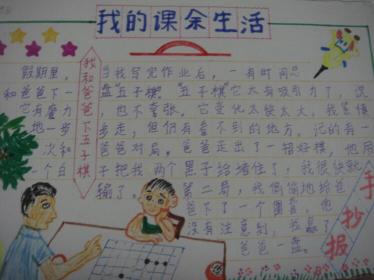 我的课余生活
我和爸爸下五子棋
假期里,当我写完作业后,一有时间
和爸爸下一盘五子棋。五子棋它太有吸引力了,说
它有魔力,也不夸张。它变化太快太大,我
地一步步走,但仍有看不到的地方。记的有一
次和爸爸对局。爸爸走出了一招好棋,他用
一个白子把我两个黑子给堵住了,我很快就
输了。第二局,我偷偷地给爸
爸下了一个圈套,他
没有注意到,我赢了
爸爸一盘。
手抄报